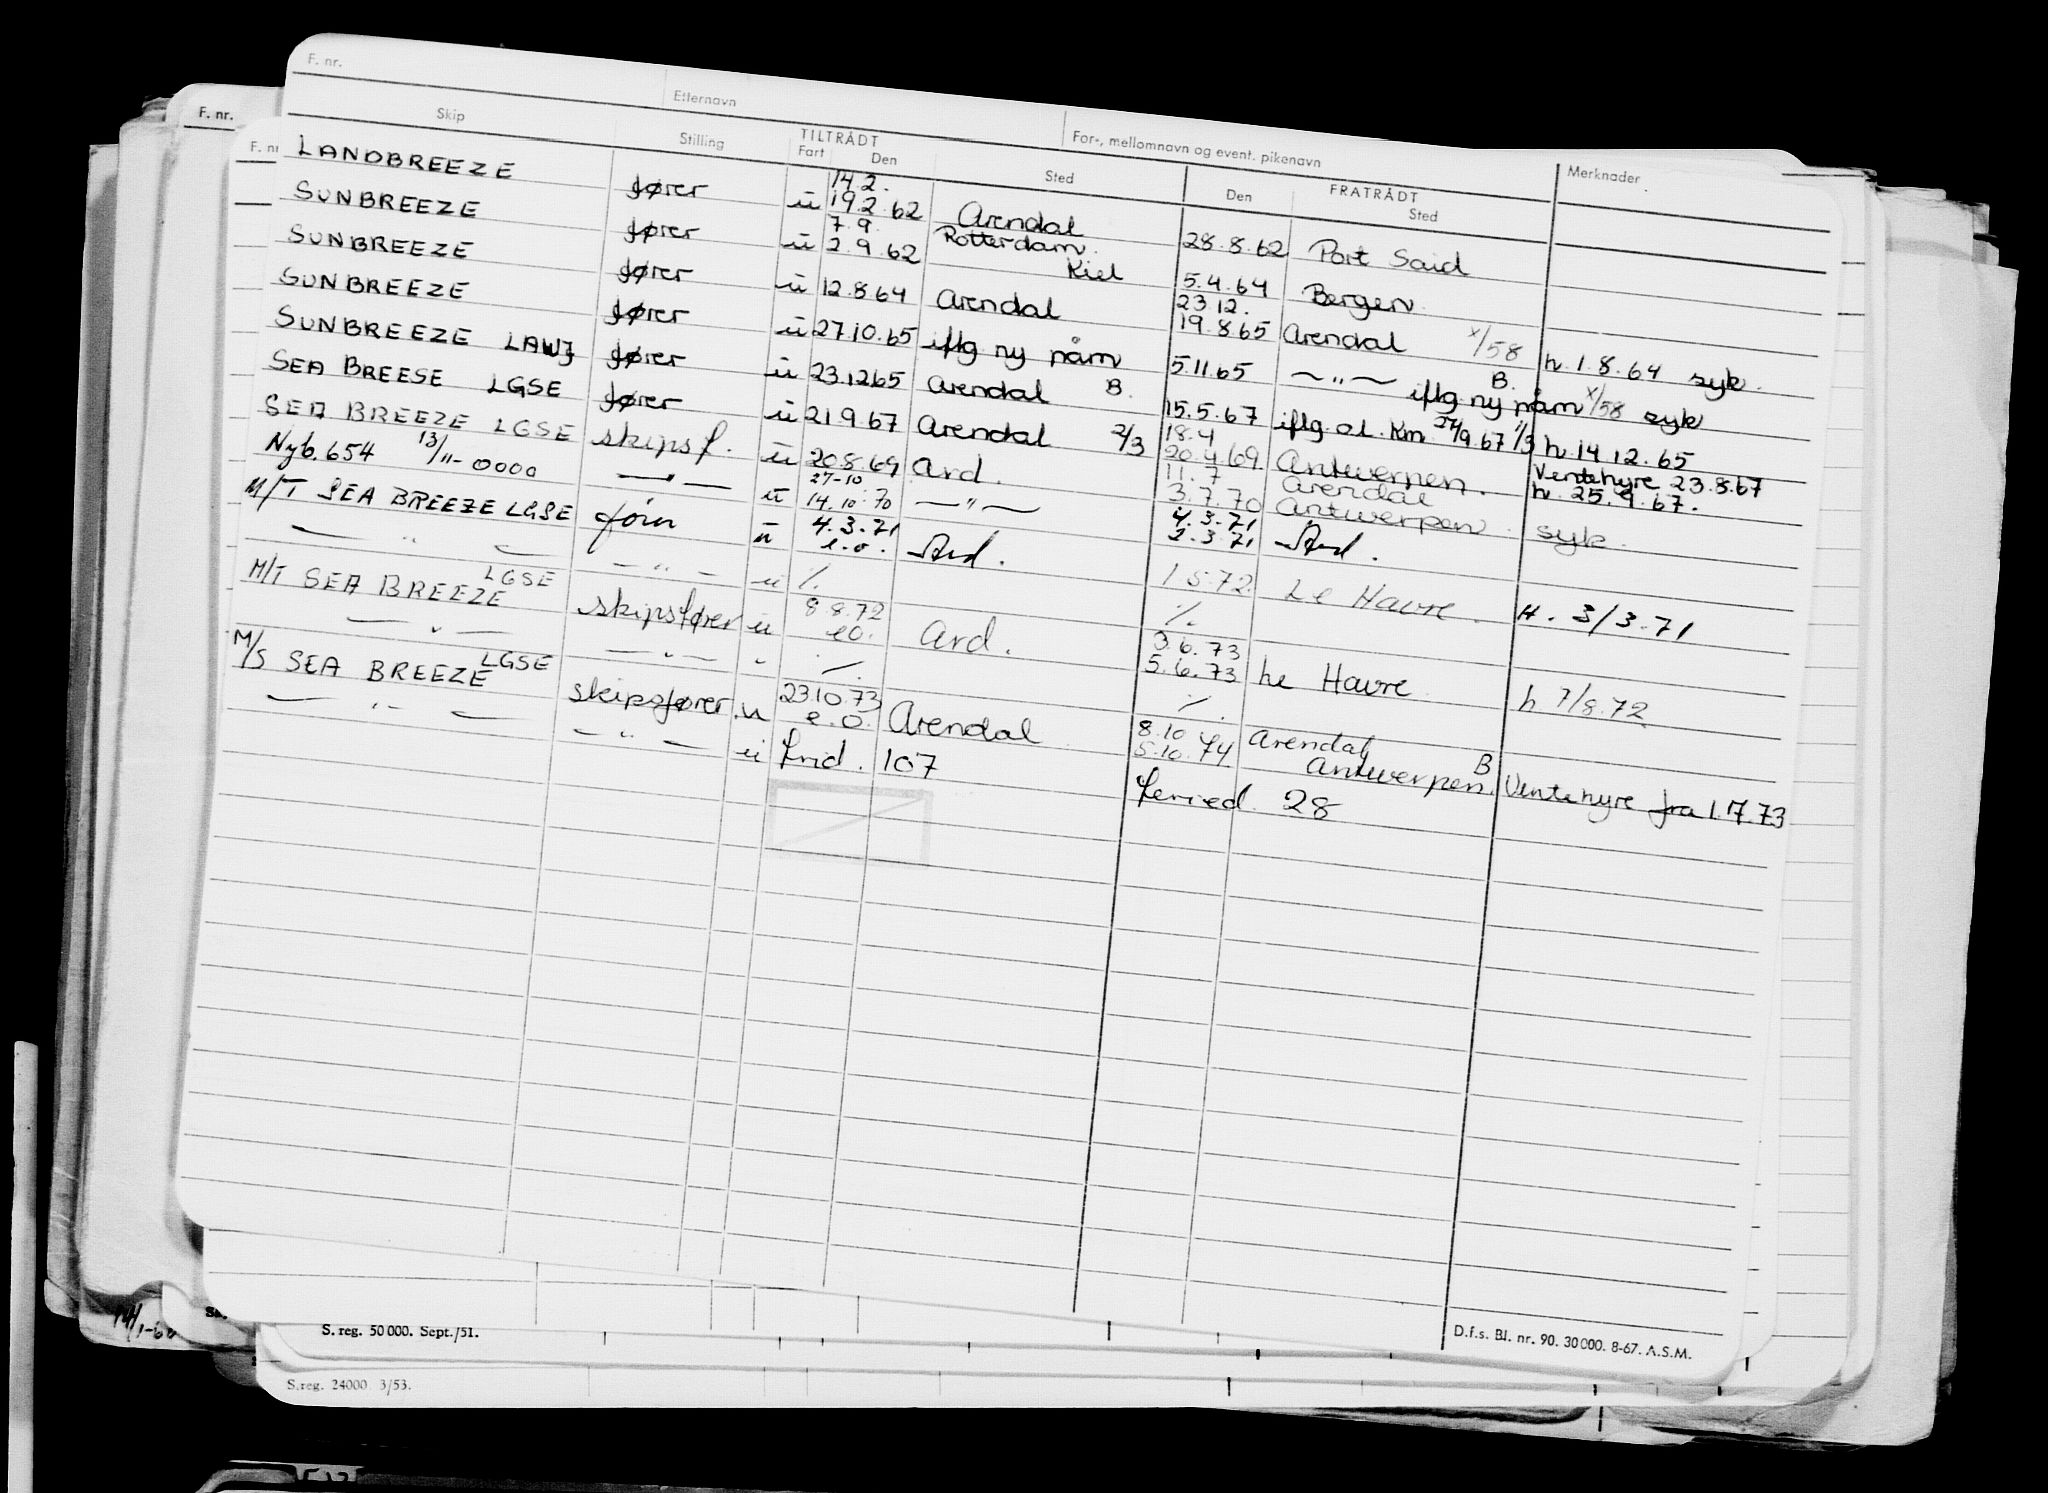 F. nr.
Etternavn
For-, mellomnavn og event. pikenavn
F. nr.
F. nr
Skip Stilling TILTRÅDT Fart Den Sted FRATRÅDT Den Sted Merknader
LANDBREEZE fører u 14.2. 19.2.62 Arendal 28.8.62 Port Said
SUNBREEZE fører u 7.9. 2.9.62 Rotterdam. Kiel 5.4.64 Bergen
SUNBREEZE fører u 12.8.64 Arendal 23.12. 19.8.65 Arendal x/58 h. 1.8.64 syk.
SUNBREEZE fører u 27.10.65 iflg ny nåm 5.11.65 —"— B. iflg ny nåm x/58 syk
SUNBREEZE LAWJ fører u 23.12.65 Arendal B. 15.5.67 iflg o.l. Km 27/9.67 1/3 h. 14.12.65
SEA BREESE LGSE fører u 21.9.67 Arendal 2/3 18.4 20.4.69 Antwerpen. Ventehyre 23.8.67 h. 25.9.67.
SEA BREEZE LGSE skipsf. u 20.8.69 Ard. 11.7 3.7.70 Arendal Antwerpen. syk.
Nyb. 654 13/11-0000 —"— u 27-10 14.10.70 —"— 4.3.71 2.3.71 Ard.
M/T SEA BREEZE LGSE fører u 4.3.71 e.o. Ard. 1.5.72 Le Havre. H. 3/3.71
—"— —"— u %. %.
M/T SEA BREEZE LGSE skipsfører u 8.8.72 eo. Ard. 3.6.73 5.6.73 Le Havre h 7/8.72
—"— —"— " %. %.
M/S SEA BREEZE LGSE skipsfører u 23.10.73 e.o. Arendal 8.10 74 5.10.74 Arendal B Antwerpen. Ventehyre fra 1.7.73
—"— —"— u frid. 107 feried. 28
D.f.s. Bl. nr. 90. 30000. 8-67. A.S.M.
S. reg. 50000. Sept./51.
S.reg. 24000 3/53.